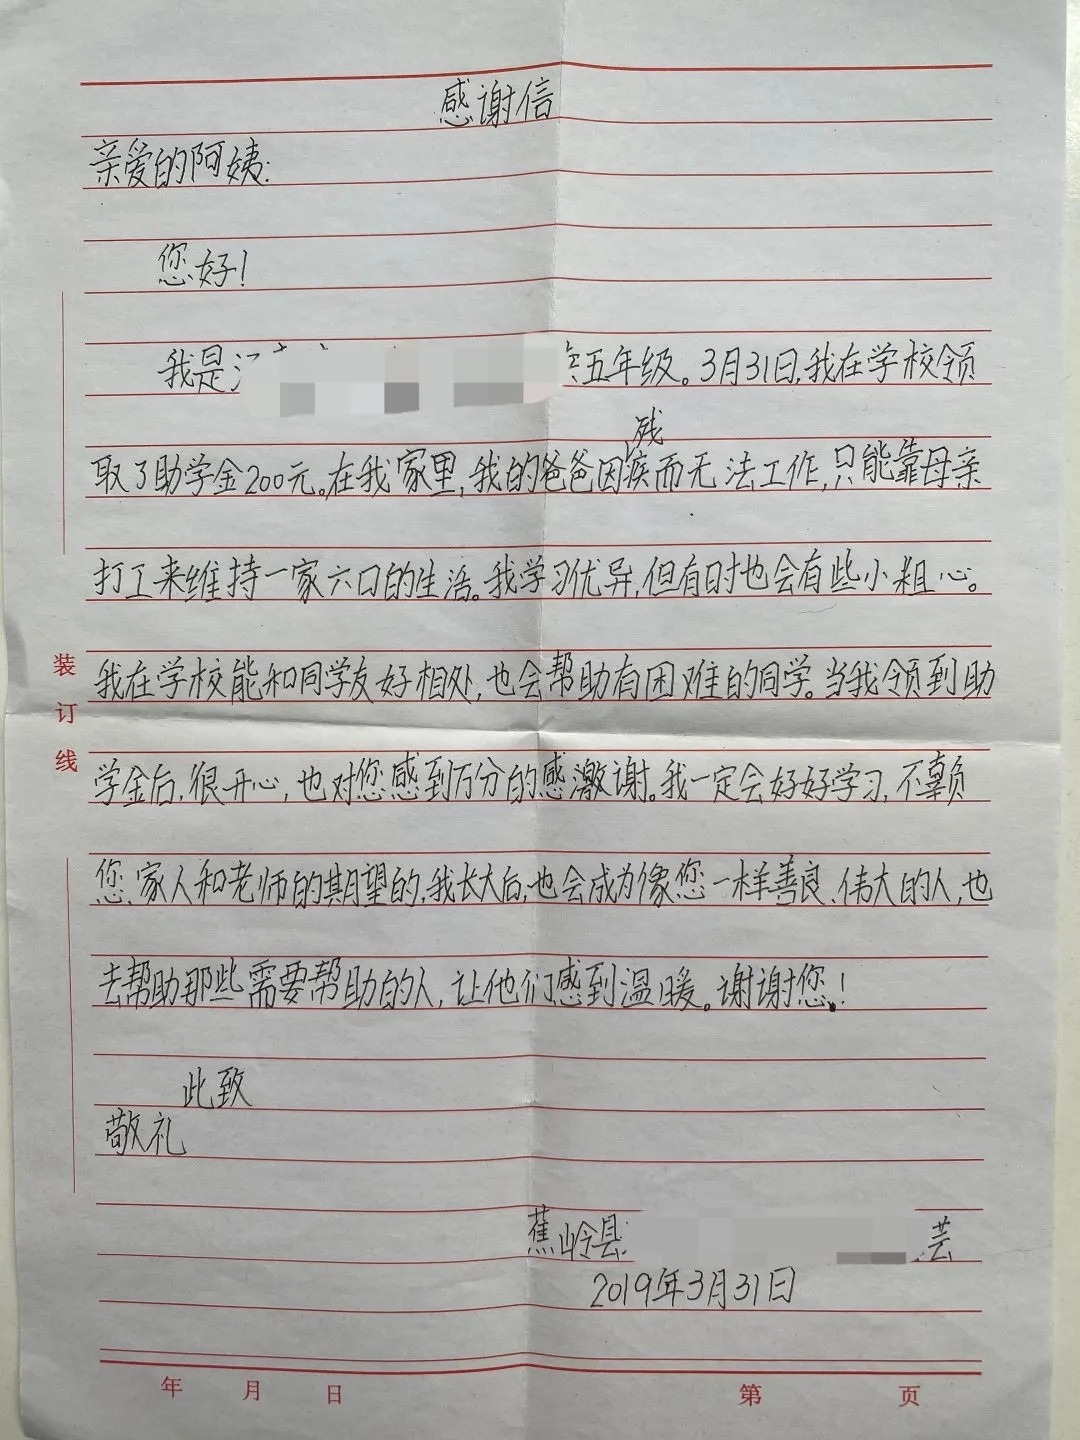 感谢信
亲爱的阿姨:
您好!
我是 五年级。3月31日,我在学校领
残
取了助学金200元。在我家里,我的爸爸因疾而无法工作,只能靠母亲
打工来维持一家六口的生活。我学习优异,但有时也会有些小粗心。
我在学校能和同学友好相处,也会帮助有困难的同学。当我领到助
学金后,很开心,也对您感到万分的感激谢。我一定会好好学习,不辜负
您、家人和老师的期望的,我长大后,也会成为像您一样善良、伟大的人,也
去帮助那些需要帮助的人,让他们感到温暖。谢谢您!
此致
敬礼
蕉岭县 芸
2019年3月31日
装
订
线
年 月 日 第 页